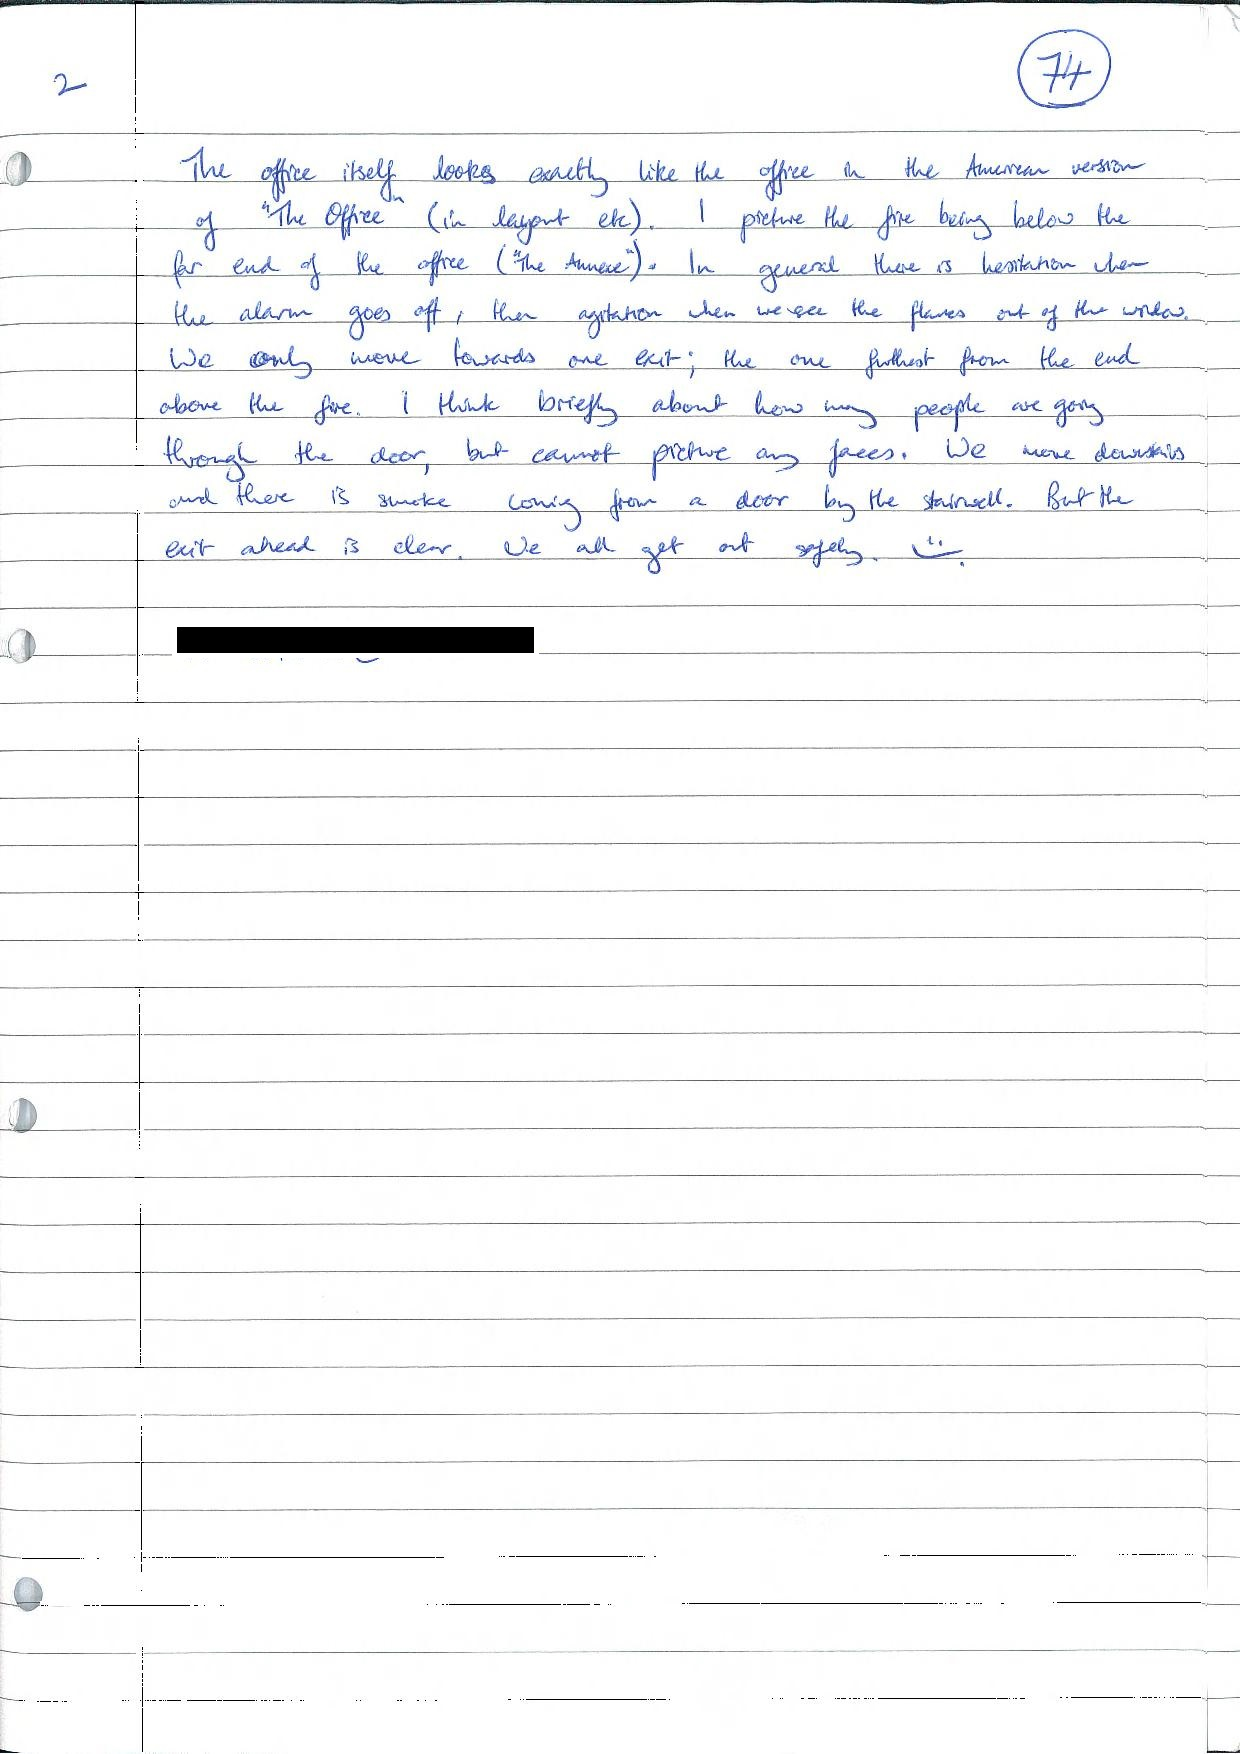 2
74
The office itself looks exactly like the office in the American version
of "The Office" (in layout etc). I picture the fire being below the
far end of the office ("The Annexe"). In general there is hesitation when
the alarm goes off, then agitation when we see the flames out of the window.
We only move towards one exit; the one furthest from the end
above the fire. I think briefly about how many people are going
through the door, but cannot picture any faces. We move downstairs
and there is smoke coming from a door by the stairwell. But the
exit ahead is clear. We all get out safely.